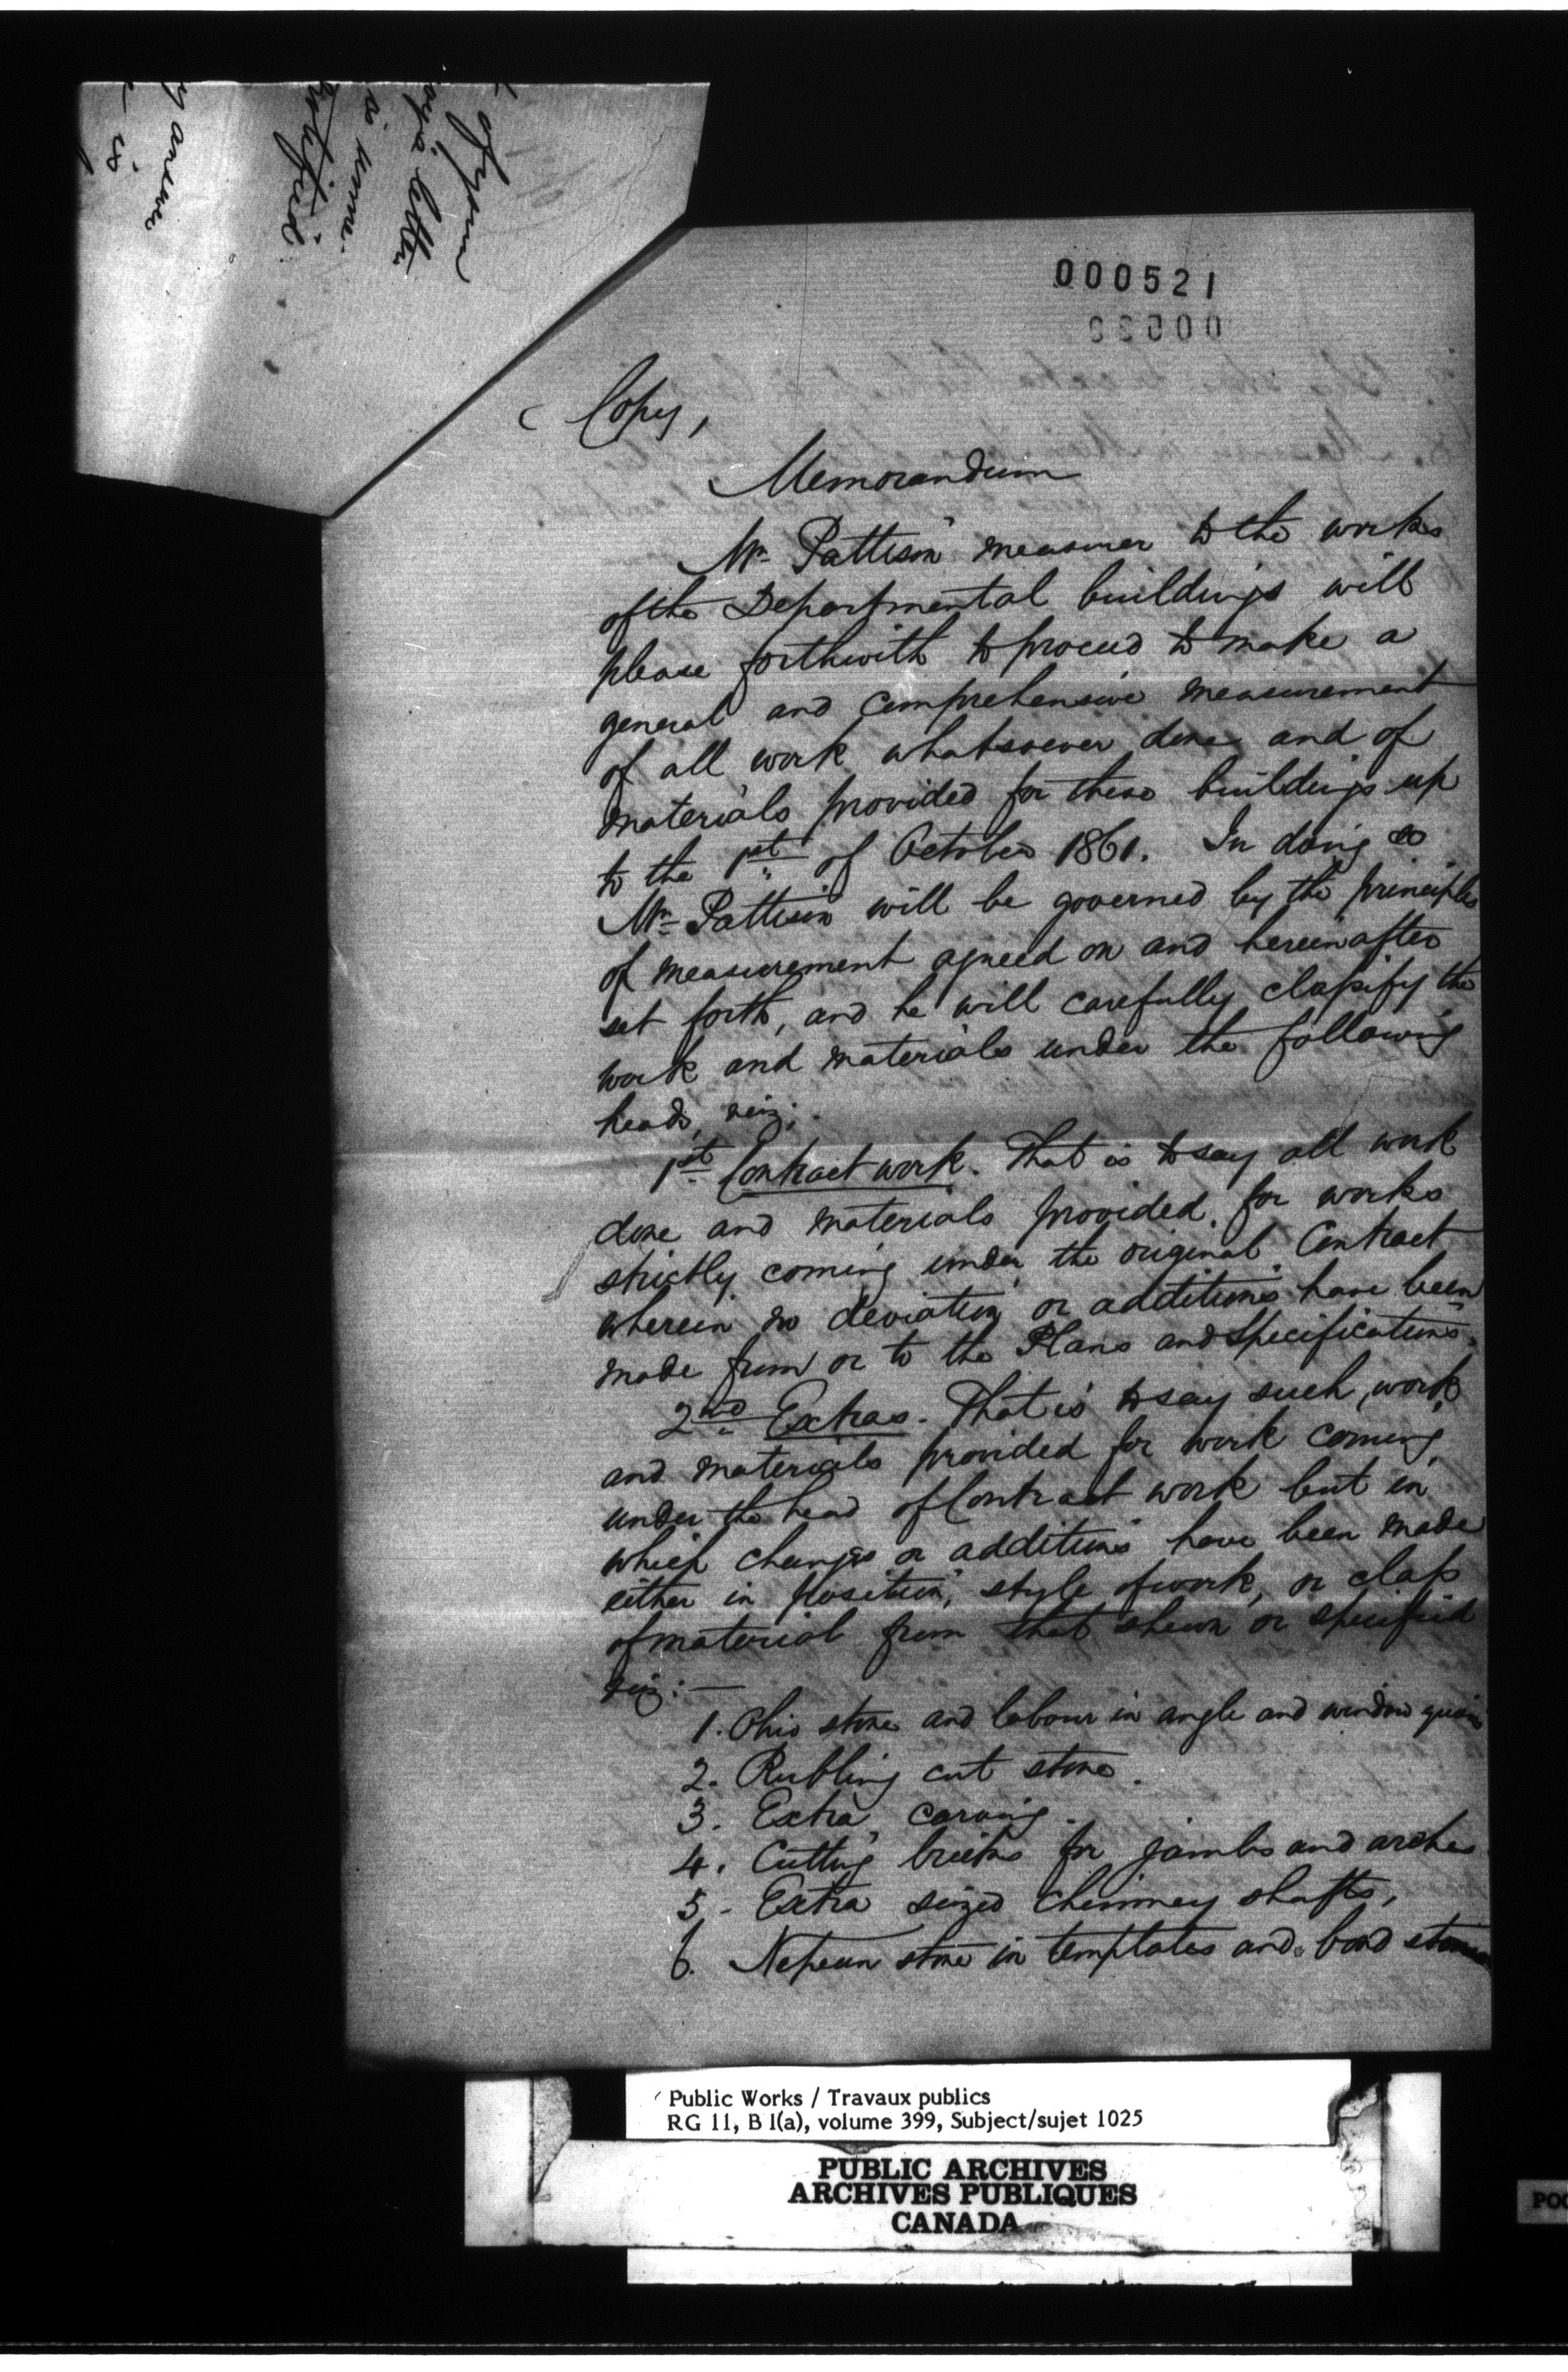 000521
Copy,
Memorandum
Mr. Pattison measurer to the works
of the Departmental buildings will
please forthwith to proceed to make a
general and comprehensive measurement
of all work whatsoever done and of
materials provided for these buildings up
to the 1st of October 1861. In doing so
Mr. Pattison will be governed by the principles
of measurement agreed on and hereinafter
set forth, and he will carefully classify the
work and materials under the following
heads, viz;
1st Contract work. That is to say all work
done and materials provided for works
strictly coming under the original Contract
wherein no deviation or additions have been
made from or to the Plans and Specifications.
2nd Extras. That is to say such work
and materials provided for work coming
under the head of Contract work but in
which changes or additions have been made
either in position, style of work, or class
of material from that shewn or specified
viz:—
1. Ohio stone and labour in angle and window quoins
2. Rubbing cut stone.
3. Extra carving.
4. Cutting bricks for jambs and arches
5. Extra sized chimney shafts,
6. Nepean stone in templates and bond stones
Public Works / Travaux publics
RG 11, B 1(a), volume 399, Subject/sujet 1025
PUBLIC ARCHIVES
ARCHIVES PUBLIQUES
CANADA